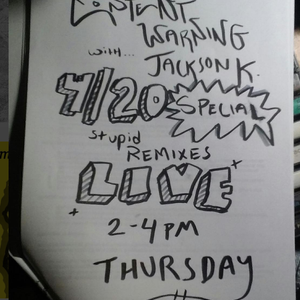 CONTENT
WARNING
with...
JACKSON K.
4/20
SPECIAL
stupid
REMIXES
LIVE
2-4 PM
THURSDAY